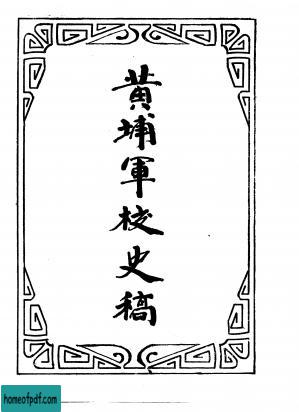 黃埔軍校史稿
homeofpdf.com